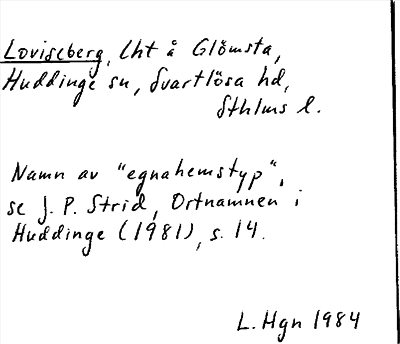 Loviseberg, lht å Glömsta,
Huddinge sn, Svartlösa hd,
Sthlms l.
Namn av "egnahemstyp",
se J. P. Strid, Ortnamnen i
Huddinge (1981), s. 14.
L. Hgn 1984